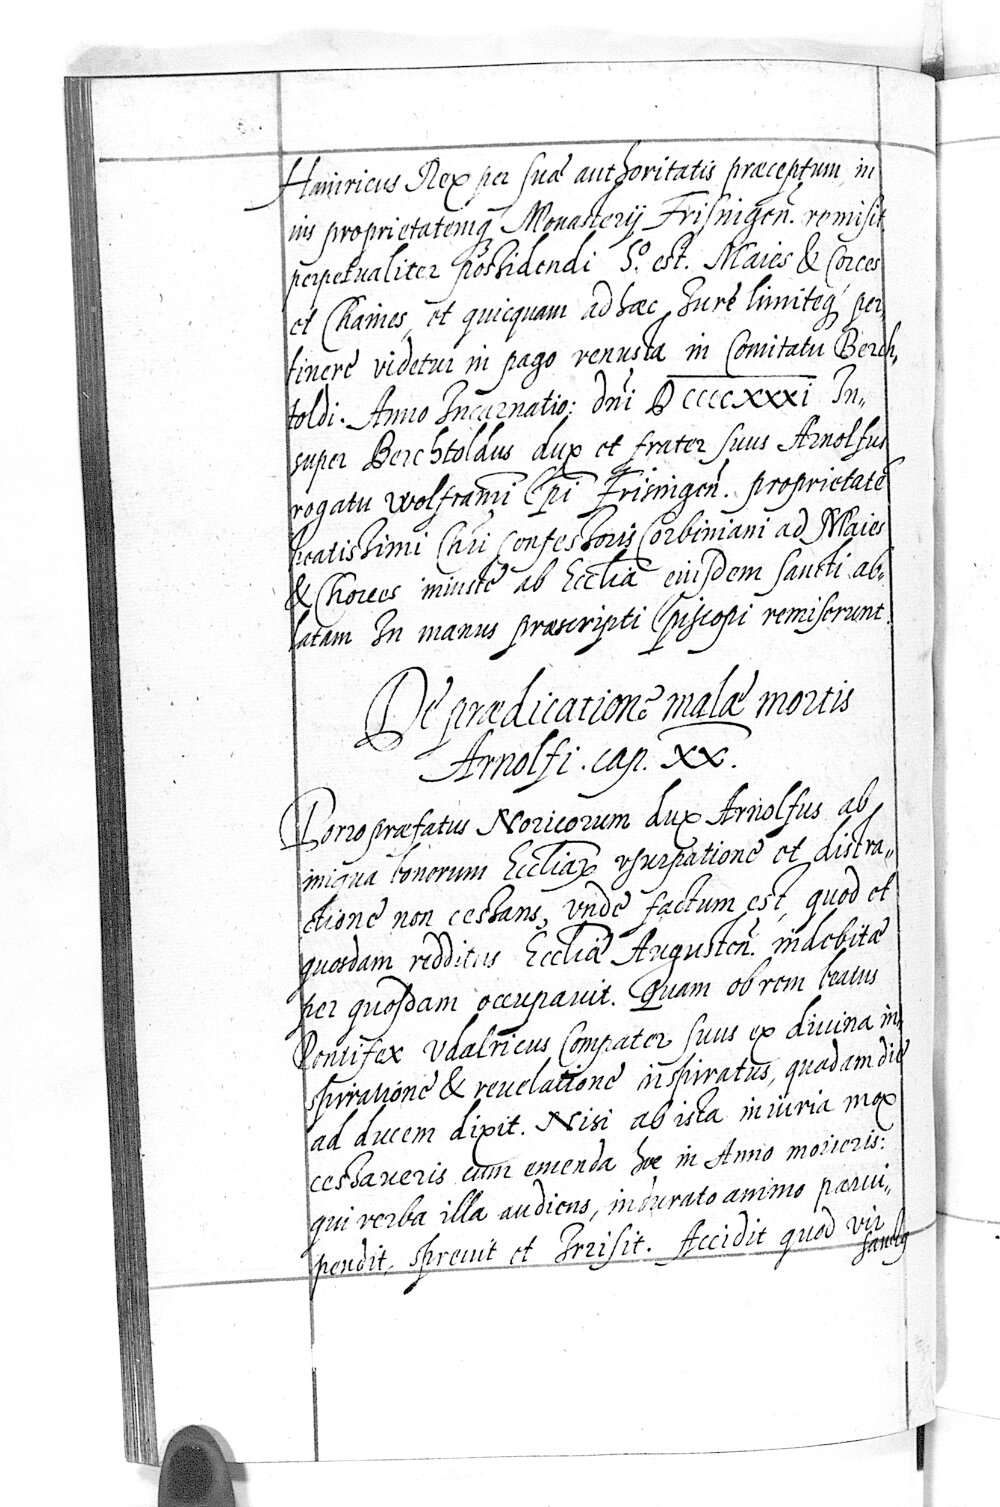 Hainricus Rex per suæ authoritatis præceptum, in
ius proprietatemq̨ Monasterij Frisingen̄. remisit
perpetualiter possidendi S. est. Maies & Corces
et Chaines, et quicquam ad hæc Iure limiteq̨ per,,
tinere videtur in pago venusta in Comitatu Berch,,
toldi. Anno Incarnatio: dn̄i DCCCCXXXI In,,
super Berchtoldus dux et frater suus Arnolfus
rogatu Wolframi Ep̄i Frisingen̄. proprietatē
beatissimi Chr̄i Confessoris Corbiniani ad Maies
& Chorces iniustè ab Eccl̄ia eiusdem sancti ab,,
latam In manus præscripti Episcopi remiserunt.
De prædicatione malæ mortis
Arnolfi. cap. XX.
Porro præfatus Noricorum dux Arnolfus ab
iniqua bonorum Eccl̄iaꝝ vsurpatione et distra,,
ctione non cessans, vnde factum est, quod et
quosdam redditus Eccl̄iæ Augusten̄. indebitæ
per quosdam occupauit. Quam ob rem beatus
Pontifex Vdalricus Compater suus ex diuina in,,
spiratione & reuelatione inspiratus, quadam die
ad ducem dixit. Nisi ab ista iniuria mox
cessaueris cum emenda hoc in Anno morieris:
qui verba illa audiens, indurato animo parui,,
pendit, spreuit et Irrisit. Accidit quod vir
sanctq̨